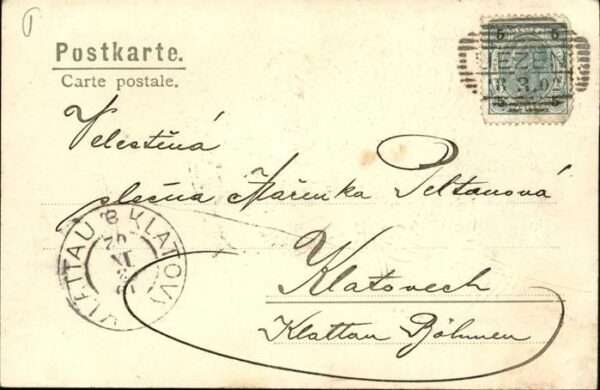 Postkarte.
Carte postale.
5 5
EZE
8 3.02
5 5
Velectěná
slečna Mařenka Peltanová
v
Klatovech
Klattau Böhmen
KLATTAU * KLATOVI